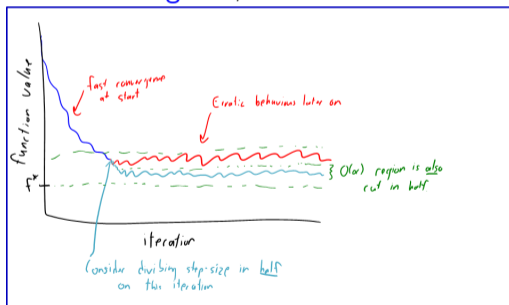 function value
fast convergence
at start
Erratic behaviour later on
} O(α) region is also
cut in half
f*
iteration
Consider dividing step-size in half
on this iteration